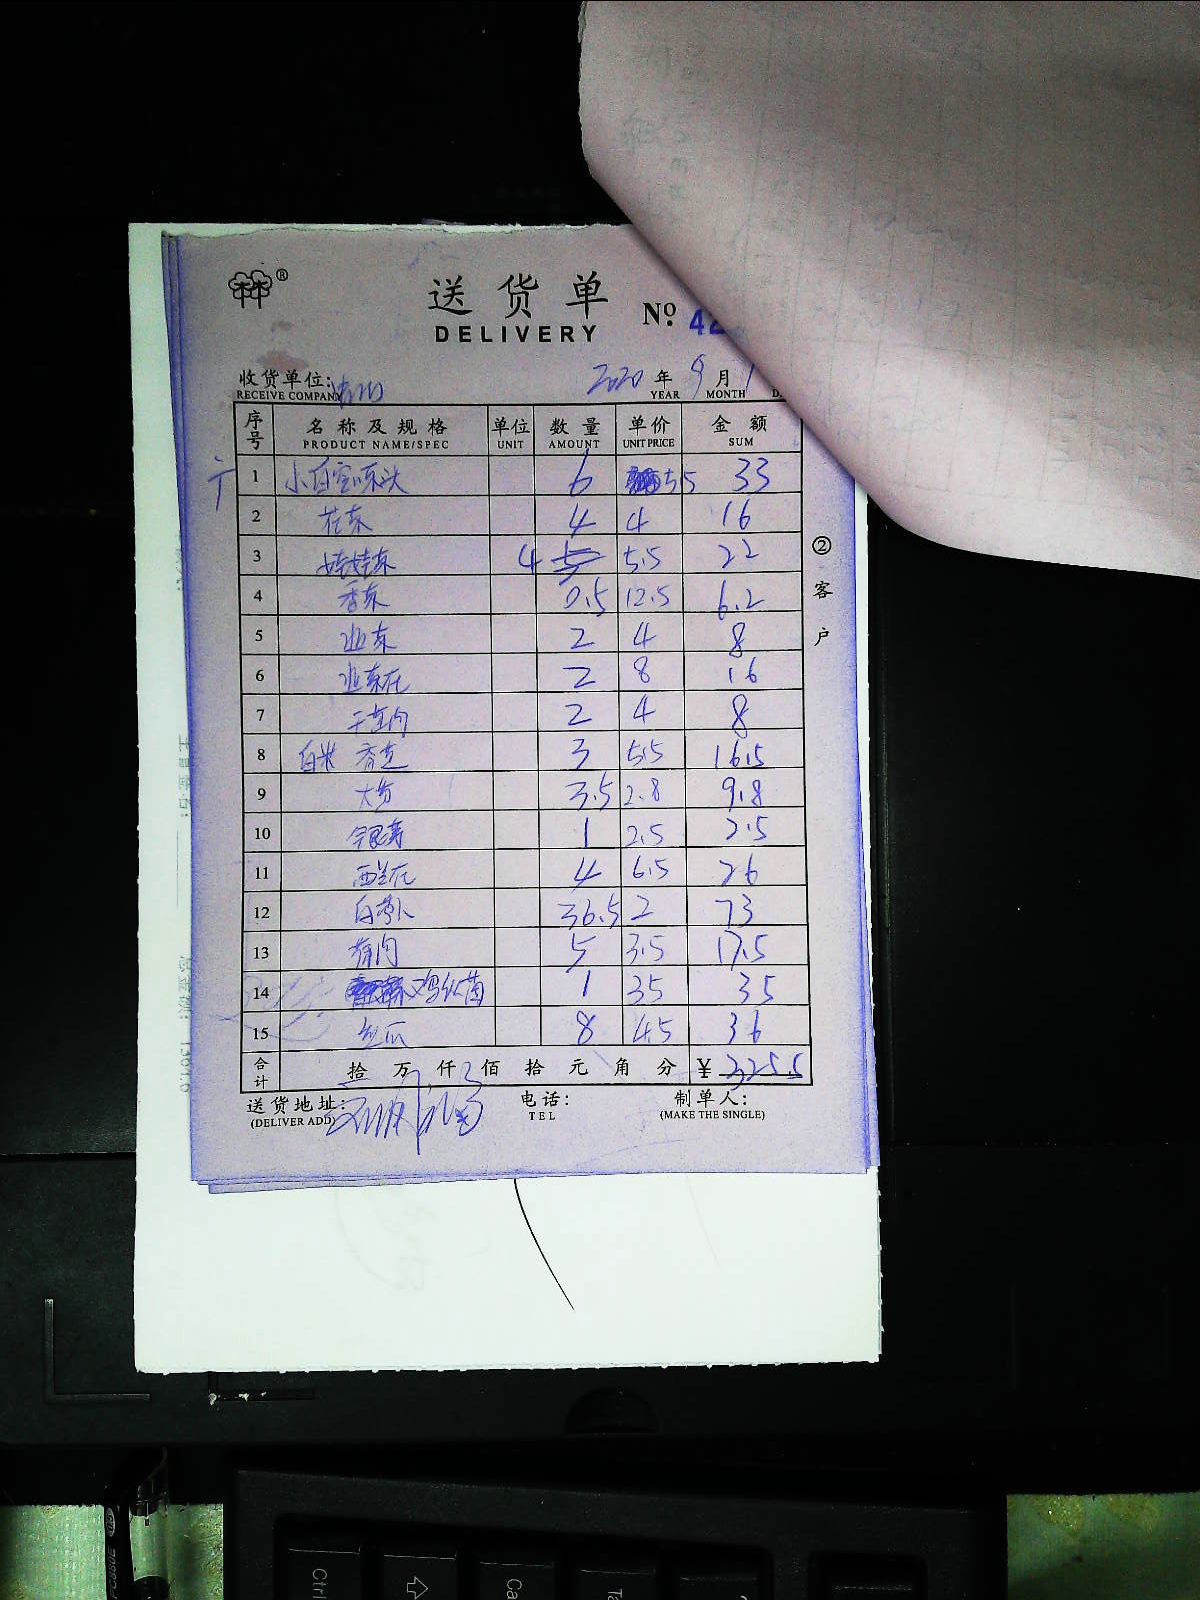 ®
送货单
DELIVERY
Nº. 42
收货单位:
RECEIVE COMPANY
2020 年 9 月 1
YEAR MONTH D
序号 名称及规格 单位 数量 单价 金额
PRODUCT NAME/SPEC UNIT AMOUNT UNIT PRICE SUM
1 6 5.5 33
2 花菜 4 4 16
3 娃娃菜 4 5.5 22
4 香菜 0.5 12.5 6.2
5 韭菜 2 4 8
6 韭菜花 2 8 16
7 2 4 8
8 白米 香芝 3 5.5 16.5
9 3.5 2.8 9.8
10 1 2.5 2.5
11 西兰花 4 6.5 26
12 白萝卜 36.5 2 73
13 5 3.5 17.5
14 鸡纵菌 1 35 35
15 丝瓜 8 4.5 36
合计 拾 万 仟 3 佰 拾 元 角 分 ¥ 325.5
送货地址: 电话: 制单人:
(DELIVER ADD) TEL (MAKE THE SINGLE)
② 客户
Ctrl